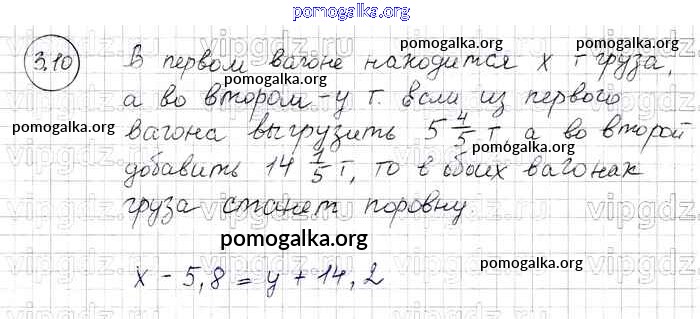 pomogalka.org
3.10 В первом вагоне находится х т груза,
pomogalka.org
а во втором - у т. Если из первого
pomogalka.org
вагона выгрузить 5 4/5 т, а во второй
pomogalka.org
добавить 14 1/5 т, то в обоих вагонах
pomogalka.org
груза станет поровну
pomogalka.org
pomogalka.org
х - 5,8 = у + 14,2
vipgdz.ru